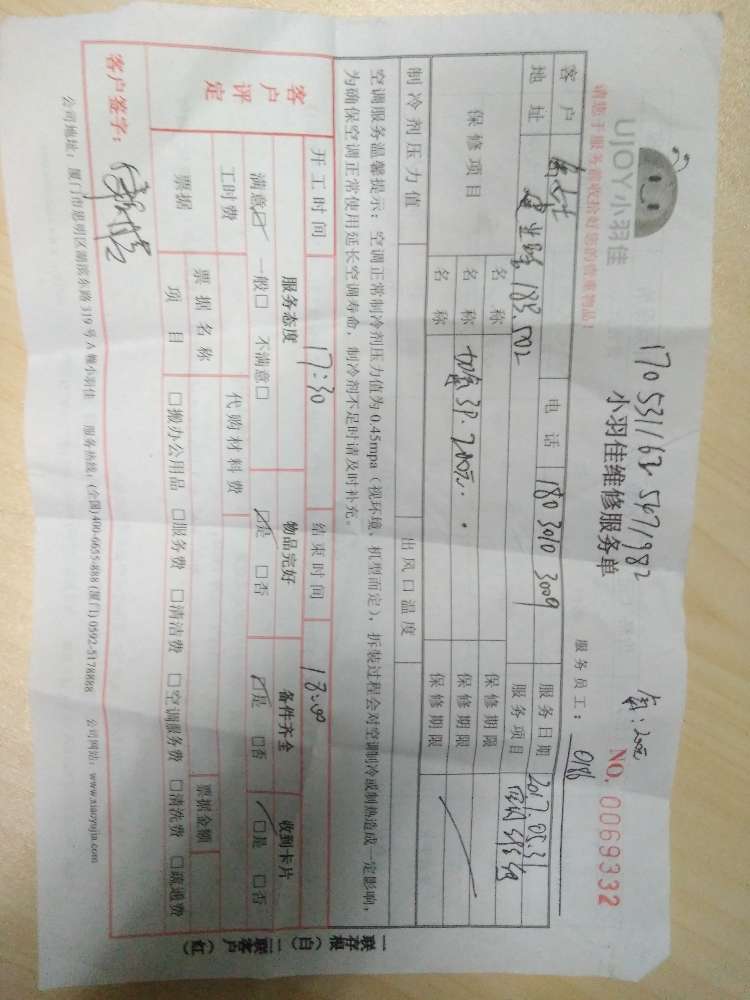 170 5311 63 5671982
氟:200元
UJOY小羽佳
小羽佳维修服务单
NO. 0069332
请您于服务前收拾好您的贵重物品!
服务员工: 018
客户 电话 180 3010 3009 服务日期 2017.05.31
地址 服务项目 空调维修
保修项目 名称 保修期限
名称 加氟3P.200元. 保修期限
名称 保修期限
制冷剂压力值 出风口温度
空调服务温馨提示:空调正常制冷剂压力值为0.45mpa(视环境、机型而定),拆装过程会对空调制冷或制热造成一定影响,
为确保空调正常使用延长空调寿命,制冷剂不足时请及时补充。
开工时间 17:30 结束时间 18:00
客户评定 服务态度 物品完好 备件齐全 收到卡片
满意☑ 一般□ 不满意□ ☑是 □否 ☑是 □否 ☑是 □否
工时费 代购材料费
票据 票据名称 票据金额
项目 □搬办公用品 □服务费 □清洁费 □空调服务费 □清洗费 □疏通费
客户签字:
公司地址:厦门市思明区湖滨东路319号A幢小羽佳 服务热线:(全国)400-6655-888 (厦门) 0592-5178888 公司网站:www.xiaoyujia.com
一联存根(白) 二联客户(红)